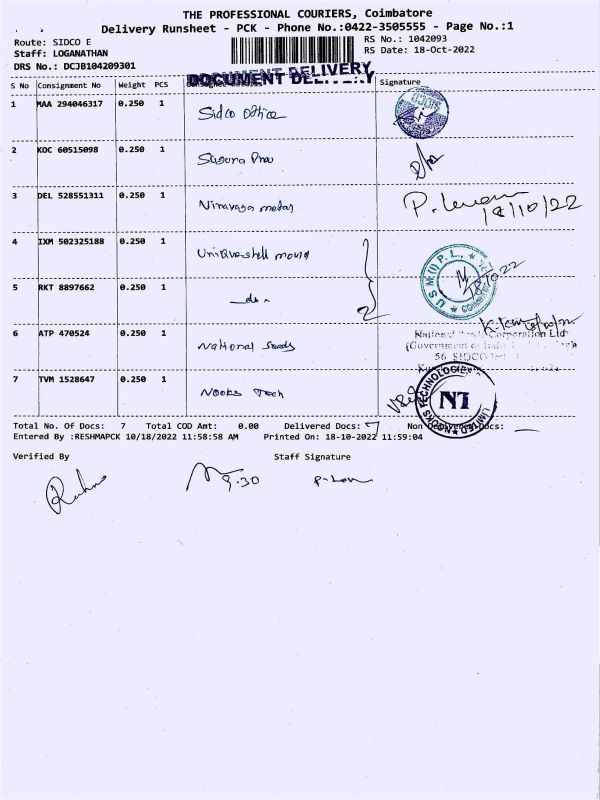 THE PROFESSIONAL COURIERS, Coimbatore
Delivery Runsheet - PCK - Phone No.:0422-3505555 - Page No.:1
Route: SIDCO E
RS No.: 1042093
Staff: LOGANATHAN
RS Date: 18-Oct-2022
DRS No.: DCJB104209301
DOCUMENT DELIVERY
S No Consignment No Weight PCS Signature
1 MAA 294046317 0.250 1 Sidco Office
2 KOC 60515098 0.250 1
3 DEL 528551311 0.250 1 P.
18/10/22
4 IXM 502325188 0.250 1
U S M (I) P. L.,
5 RKT 8897662 0.250 1 -do-
6 ATP 470524 0.250 1 National Seeds
National Corporation Ltd
(Government of India
56 SIDCO
7 TVM 1528647 0.250 1 Nooks Tech
NOOKS TECHNOLOGIES LIMITED
NT
Total No. Of Docs: 7 Total COD Amt: 0.00 Delivered Docs: 7 Non Delivered Docs: —
Entered By :RESHMAPCK 10/18/2022 11:58:58 AM Printed On: 18-10-2022 11:59:04
Verified By Staff Signature
9.30